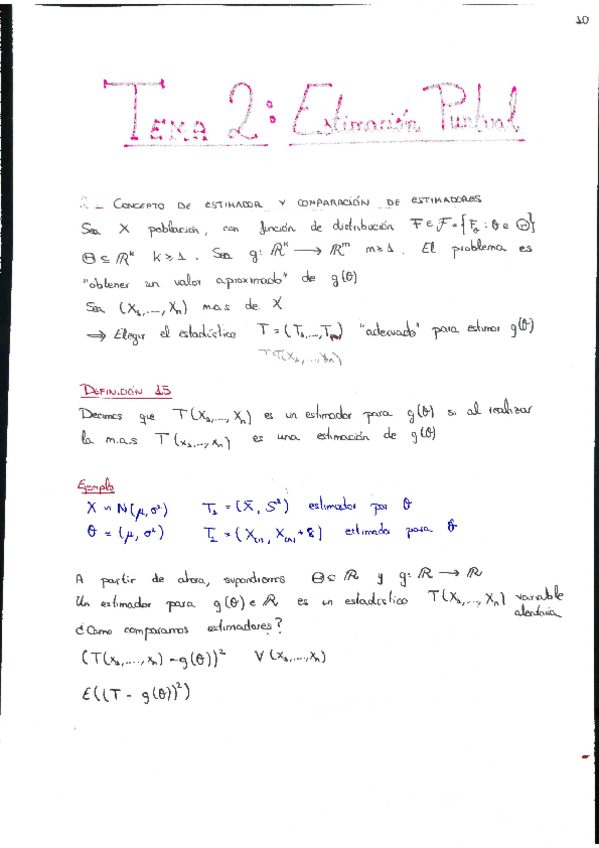 10
Tema 2: Estimación Puntual
2_ CONCEPTO DE ESTIMADOR Y COMPARACIÓN DE ESTIMADORES
Sea X población, con función de distribución F ∈ 𝓕 = {F_θ : θ ∈ Θ}
Θ ⊆ ℝ^k k ≥ 1. Sea g: ℝ^k → ℝ^m m ≥ 1. El problema es
"obtener un valor aproximado" de g(θ)
Sea (X₁,...,Xn) m.a.s de X
⇒ Elegir el estadístico T = (T₁,...,Tm) "adecuado" para estimar g(θ)
T=T(X₁,...,Xn)
DEFINICIÓN 15
Decimos que T(X₁,...,Xn) es un estimador para g(θ) si al realizar
la m.a.s T(x₁,...,xn) es una estimación de g(θ)
Ejemplo
X ~ N(μ,σ²) T₁ = (X̄, S²) estimador por θ
θ = (μ,σ²) T₂ = (X₍₁₎, X₍n₎+8) estimado para θ
A partir de ahora, supondremos Θ ⊆ ℝ y g: ℝ → ℝ
Un estimador para g(θ) ∈ ℝ es un estadístico T(X₁,...,Xn) variable aleatoria
¿Cómo comparamos estimadores?
(T(x₁,...,xn) - g(θ))² ∀ (x₁,...,xn)
E((T - g(θ))²)